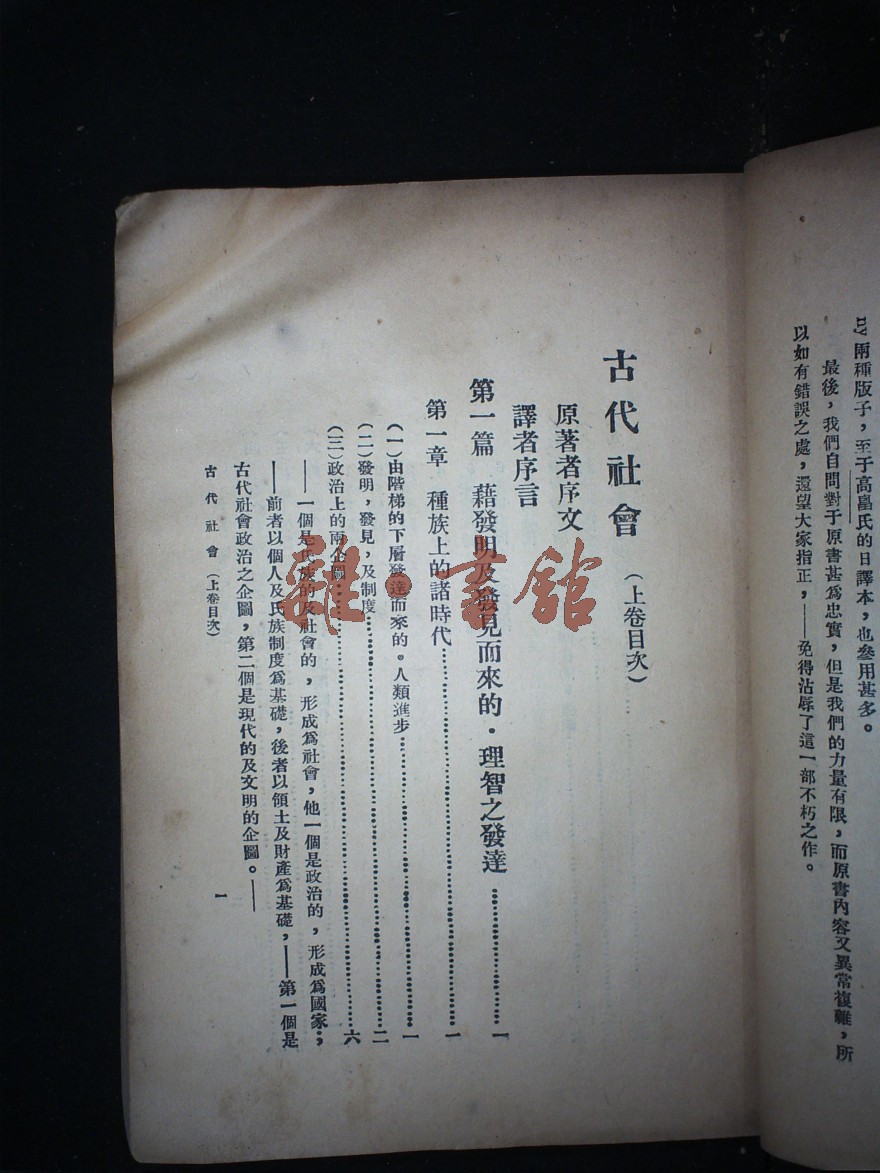 兩種版子，至于高畠氏的日譯本，也叄用甚多。
最後，我們自問對于原書甚爲忠實，但是我們的力量有限，而原書內容又異常複雜，所
以如有錯誤之處，還望大家指正，——免得沾辱了這一部不朽之作。
古代社會（上卷目次）
原著者序文
譯者序言
第一篇 藉發明及發見而來的·理智之發達……一
第一章 種族上的諸時代……一
（一）由階梯的下層發達而來的。人類進步……一
（二）發明，發見，及制度……二
（三）政治上的兩企圖……六
——一個是氏族的及社會的，形成爲社會，他一個是政治的，形成爲國家；
——前者以個人及氏族制度爲基礎，後者以領土及財產爲基礎，——第一個是
古代社會政治之企圖，第二個是現代的及文明的企圖。——
古代社會（上卷目次）
一
雜·書館